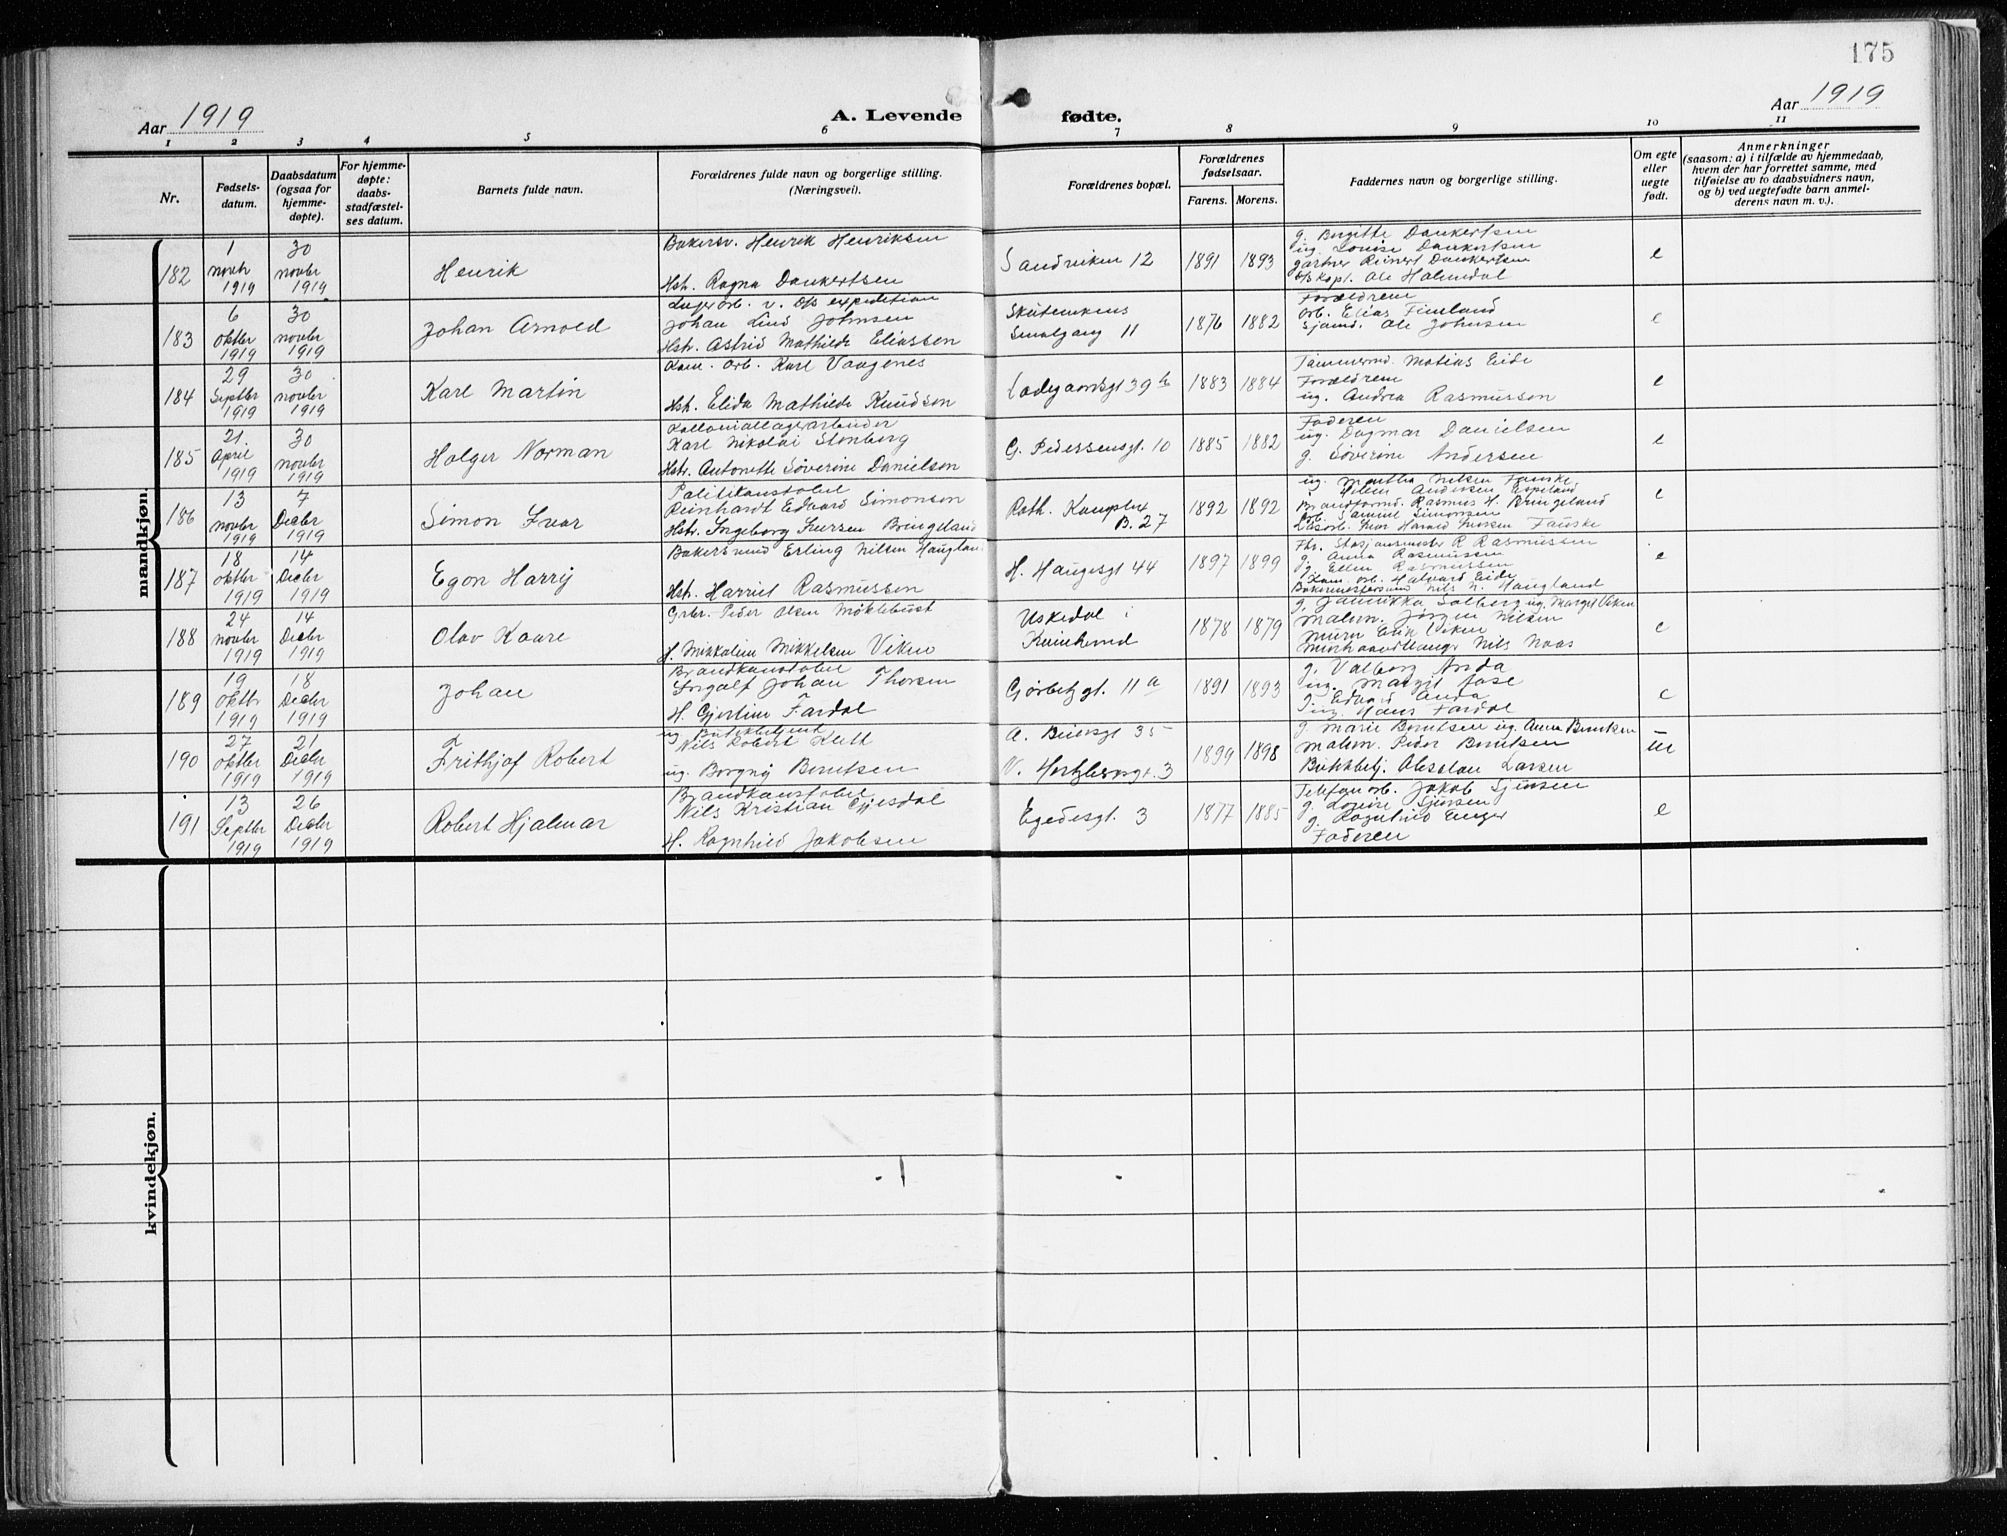 175
Aar 1919
A. Levende fødte.
Aar 1919
1 2 3 4 5 6 7 8 9 10 11
Nr.
Fødsels-
datum.
Daabsdatum
(ogsaa for
hjemme-
døpte).
For hjemme-
døpte:
daabs-
stadfæstel-
ses datum.
Barnets fulde navn.
Forældrenes fulde navn og borgerlige stilling.
(Næringsvei).
Forældrenes bopæl.
Forældrenes
fødselsaar.
Farens. Morens.
Faddernes navn og borgerlige stilling.
Om egte
eller
uegte
født.
Anmerkninger
(saasom: a) i tilfælde av hjemmedaab,
hvem der har forrettet samme, med
tilføielse av to daabsvidners navn,
og b) ved uegtefødte barn anmel-
derens navn m. v.).
mandkjøn.
182
1
novbr
1919
30
novbr
1919
Henrik
Bakersv. Henrik Henriksen
Hst. Ragna Dankertsen
Sandviken 12
1891 1893
g. Birgitte Dankertsen
ug. Louise Dankertsen
gartner Reinert Dankertsen
e
183
6
oktbr
1919
30
novbr
1919
Johan Arnold
Lagerarb. v. D/s expedition
Johan Lind Johnsen
Hst. Astrid Mathilde Eliassen
Smalgang 11
1876 1882
Forældrene
Sjømd. Ole Johnsen
e
184
29
Septbr
1919
30
novbr
1919
Karl Martin
Kom. arb. Karl Vaagenes
Hst. Elida Mathilde Knudsen
Ladegaardsgt 39 b
1883 1884
Tømmermd. Matias Eide
Forældrene
ug. Andrea Rasmussen
e
185
21
April
1919
30
novbr
1919
Holger Norman
Kolloniallagerarbeider
Karl Nikolai Stenberg
Hstr. Antonette Søverine Danielsen
G. Pedersensgt. 10
1885 1882
Faderen
ug. Dagmar Danielsen
g. Søverine Andersen
e
186
13
novbr
1919
7
Decbr
1919
Simon Ivar
Politikonstabel
Reinhardt Edvard Simonsen
Hst. Ingeborg Iversen Bringeland
B. 27
1892 1892
ug. Martha Nilsen Fauske
Brandformd. Rasmus H. Bringeland
Arb. Samuel Simonsen
e
187
18
oktbr
1919
14
Decbr
1919
Egon Harry
Bakersvend Erling Nilsen Haugland
Hst. Harriet Rasmussen
H. Haugesgt 44
1897 1899
Fhv. Stasjonsmester R Rasmussen
g. Anna Rasmussen
g. Ellen Rasmussen
Kom. arb. Halvard Eide
Bakermestersvend Nils N. Haugland
e
188
24
novbr
1919
14
Decbr
1919
Olav Kaare
Grbr. Peder Olsen Møklebust
H. Mikkaline Mikkelsen Viken
Uskedal i
Kvinherred
1878 1879
g. Jannikka Solberg ug. Margit Viken
Malsv. Jørgen Nilsen
Murer Erik Viken
Murhaandlanger Nils Naas
e
189
19
oktbr
1919
18
Decbr
1919
Johan
Brandkonstabel
Ingolf Johan Thorsen
H. Gjertine Fardal
Gjørbelgt. 11 a
1891 1893
g. Valborg Anda
ug. Margit Aase
g. Edvard Anda
ug. Hans Fardal
e
190
27
oktbr
1919
21
Decbr
1919
Frithjof Robert
ug. Butikbetjent
Nils Robert Kleth
ug. Borgny Berntsen
A. Beiersgt 35
V. Hertzbergsgt. 3
1899 1898
g. Marie Berntsen ug. Anna Berntsen
Malsv. Peder Berntsen
Butikbetj. Absalon Larsen
ue
191
13
Septbr
1919
26
Decbr
1919
Robert Hjalmar
Brandkonstabel
Nils Kristian Gjesdal
H. Ragnhild Jakobsen
Egedesgt. 3
1877 1885
Telefonarb. Jakob Sjursen
g. Louise Sjursen
g. Ragnhild Unger
Faderen
e
kvindekjøn.